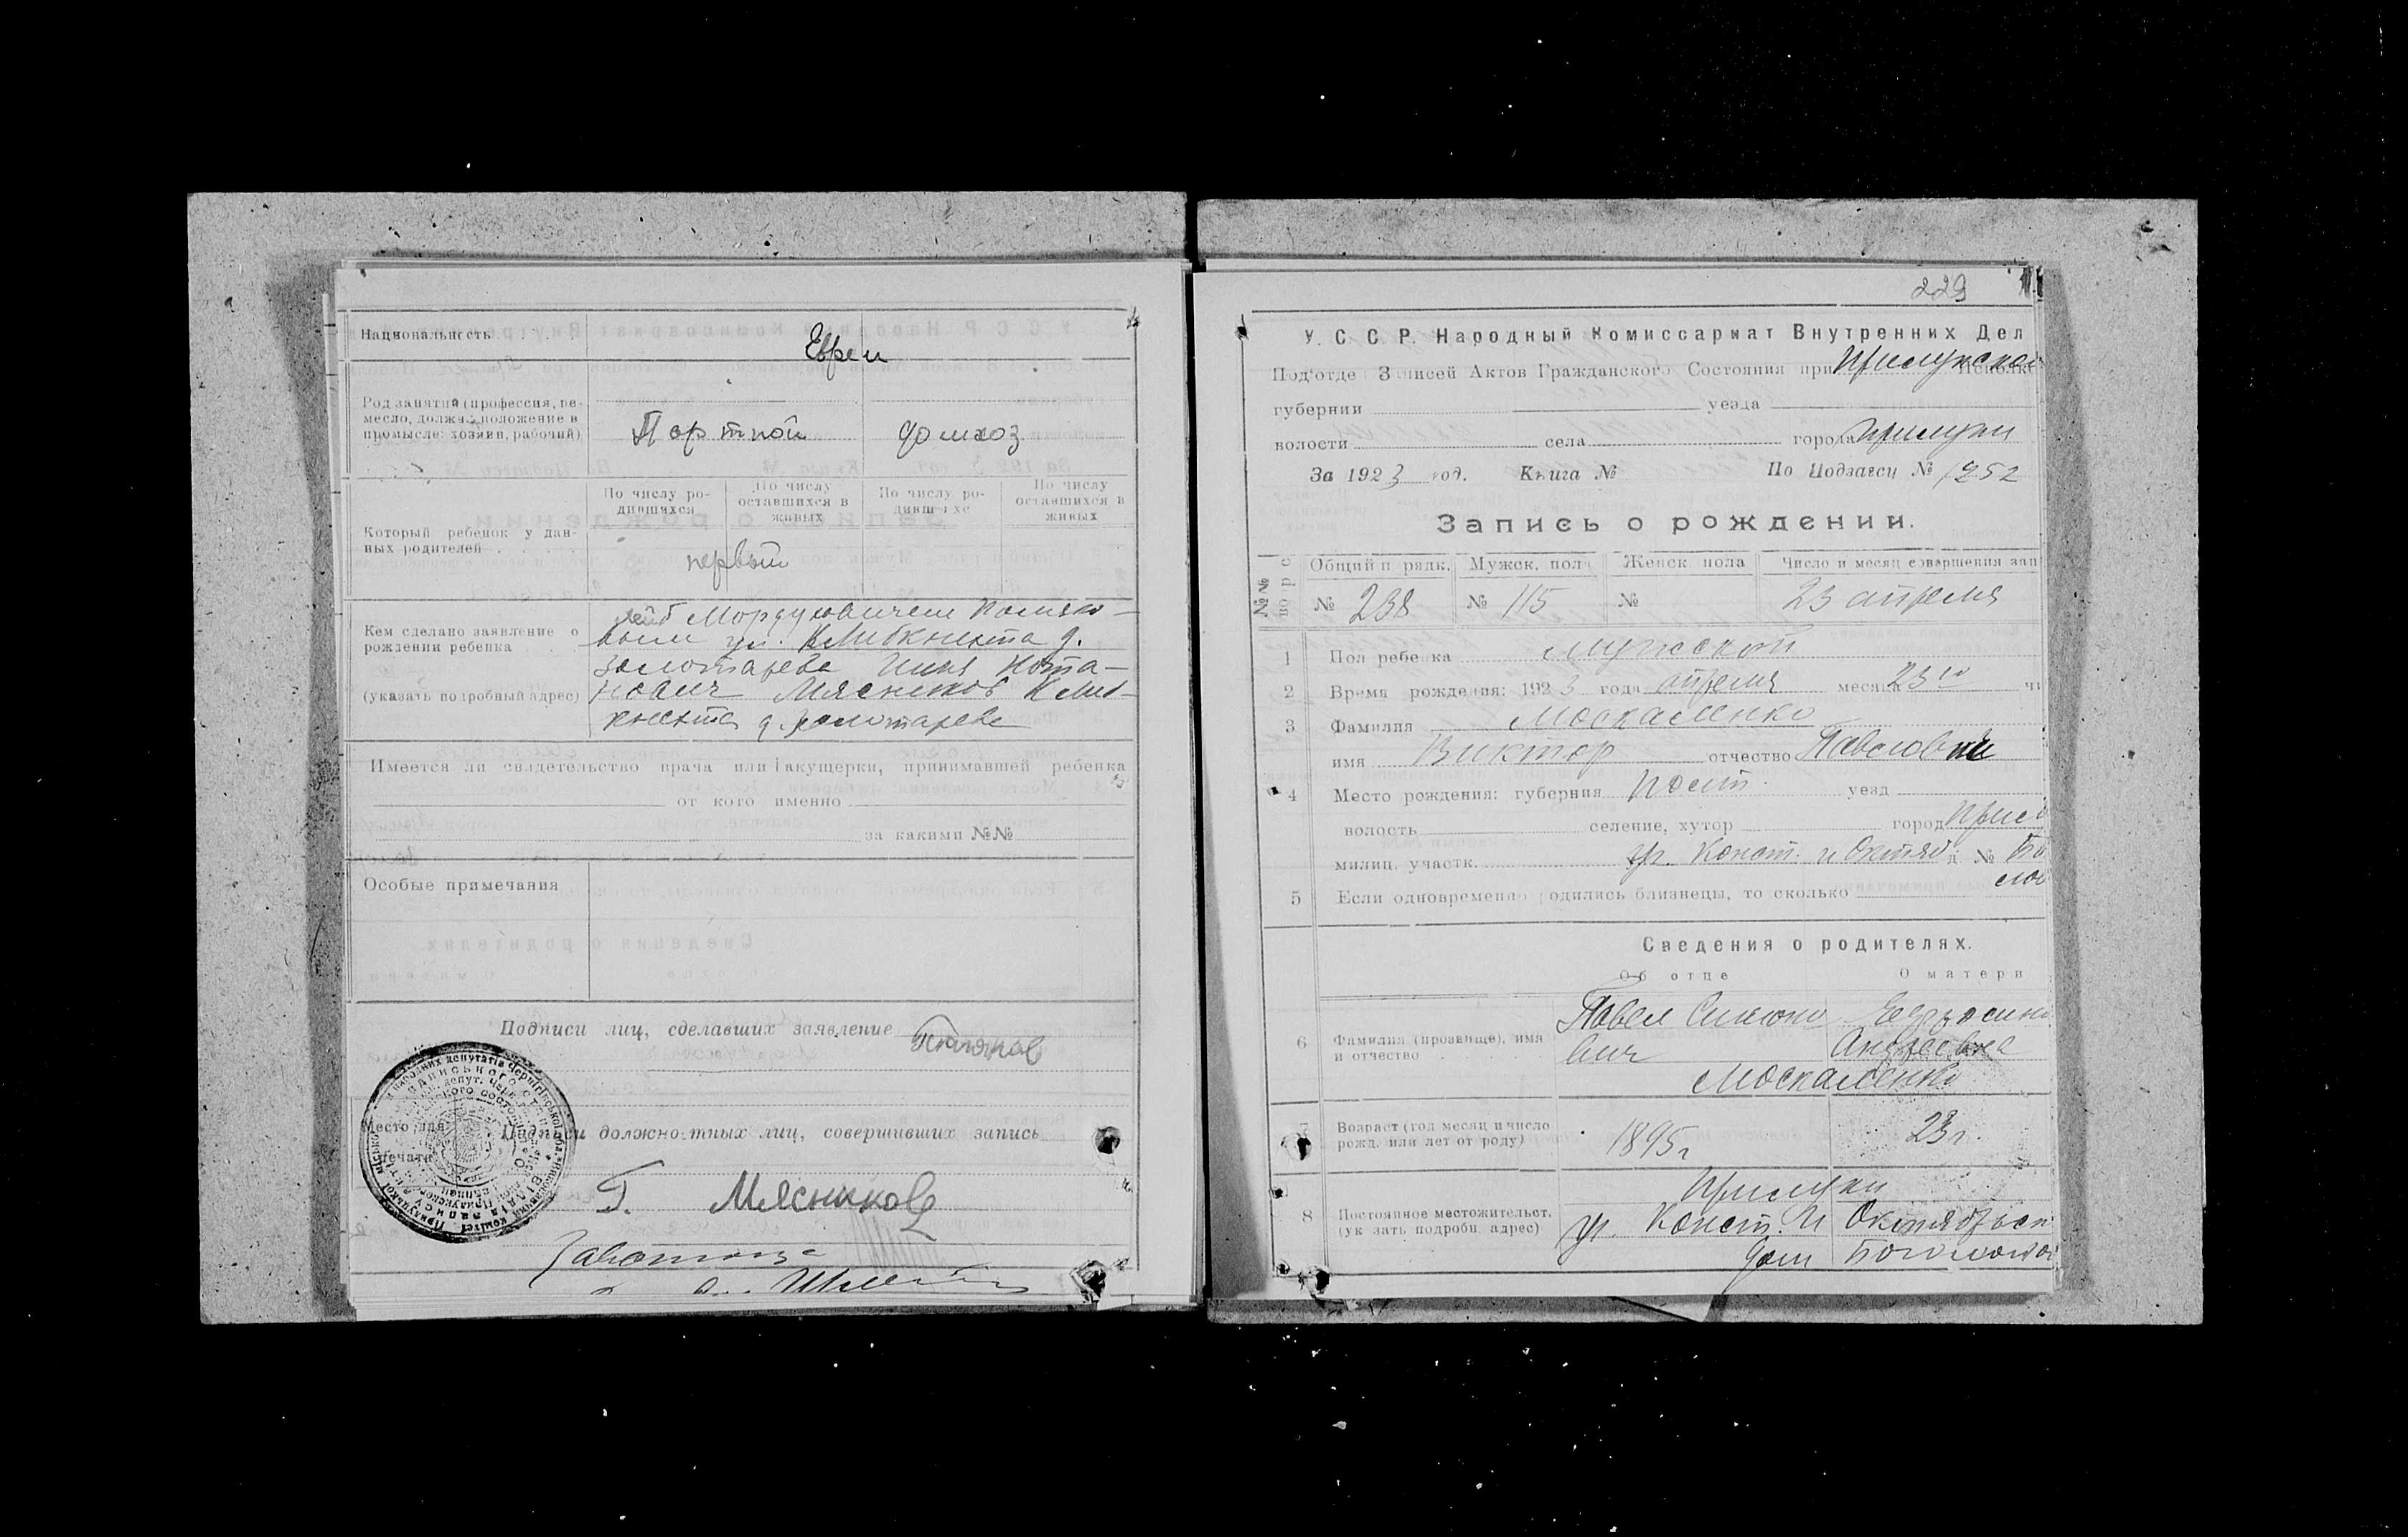 Национальность
Евреи
Род занятий (профессия, ре-
месло, должн. положение в
промысле: хозяин, рабочий)
Портной
домхоз
Который ребенок у дан-
ных родителей
По числу ро-
дившихся
По числу
оставшихся в
живых
По числу ро-
дившихся
По числу
оставшихся в
живых
первый
Кем сделано заявление о
рождении ребенка
(указать подробный адрес)
Мордуховичем Поляко-
вым ул. КЛибкнехта д.
Золотарева Нота-
нович Мясников КЛиб-
кнехта д. Золотарева
Имеется ли свидетельство врача или акушерки, принимавшей ребенка
от кого именно
за какими №№
Особые примечания
Подписи лиц, сделавших заявление
Место для
печати
Подписи должностных лиц, совершивших запись
Г. Мясников
229
У. С. С. Р. Народный Комиссариат Внутренних Дел
Подотде Записей Актов Гражданского Состояния при Прилукском Исполк
губернии уезда
волости села города Прилуки
За 1923 год. Книга № По Подзагсу № 1252
Запись о рождении.
№№
Общий п рядк. Мужск. пола Женск. пола Число и месяц совершения зап
№ 238 № 115 № 23 апреля
1 Пол ребенка мужской
2 Время рождения: 1923 года апреля месяца 23го чи
3 Фамилия Москаленко
имя Виктор отчество Павлович
4 Место рождения: губерния Полт. уезд
волость селение, хутор город Прил
милиц. участк. уг. Конст. и Октяб д. № Бо
5 Если одновременно родились близнецы, то сколько
Сведения о родителях.
Об отце О матери
6 Фамилия (прозвище), имя
и отчество
Павел
вич
Андреевна
Москаленко
7 Возраст (год месяц и число
рожд. или лет от роду)
1895г
23 г.
8 Постоянное местожительст.
(ук зать подробн. адрес)
Прилуки
уг. Конст. и Октябрьск
дом